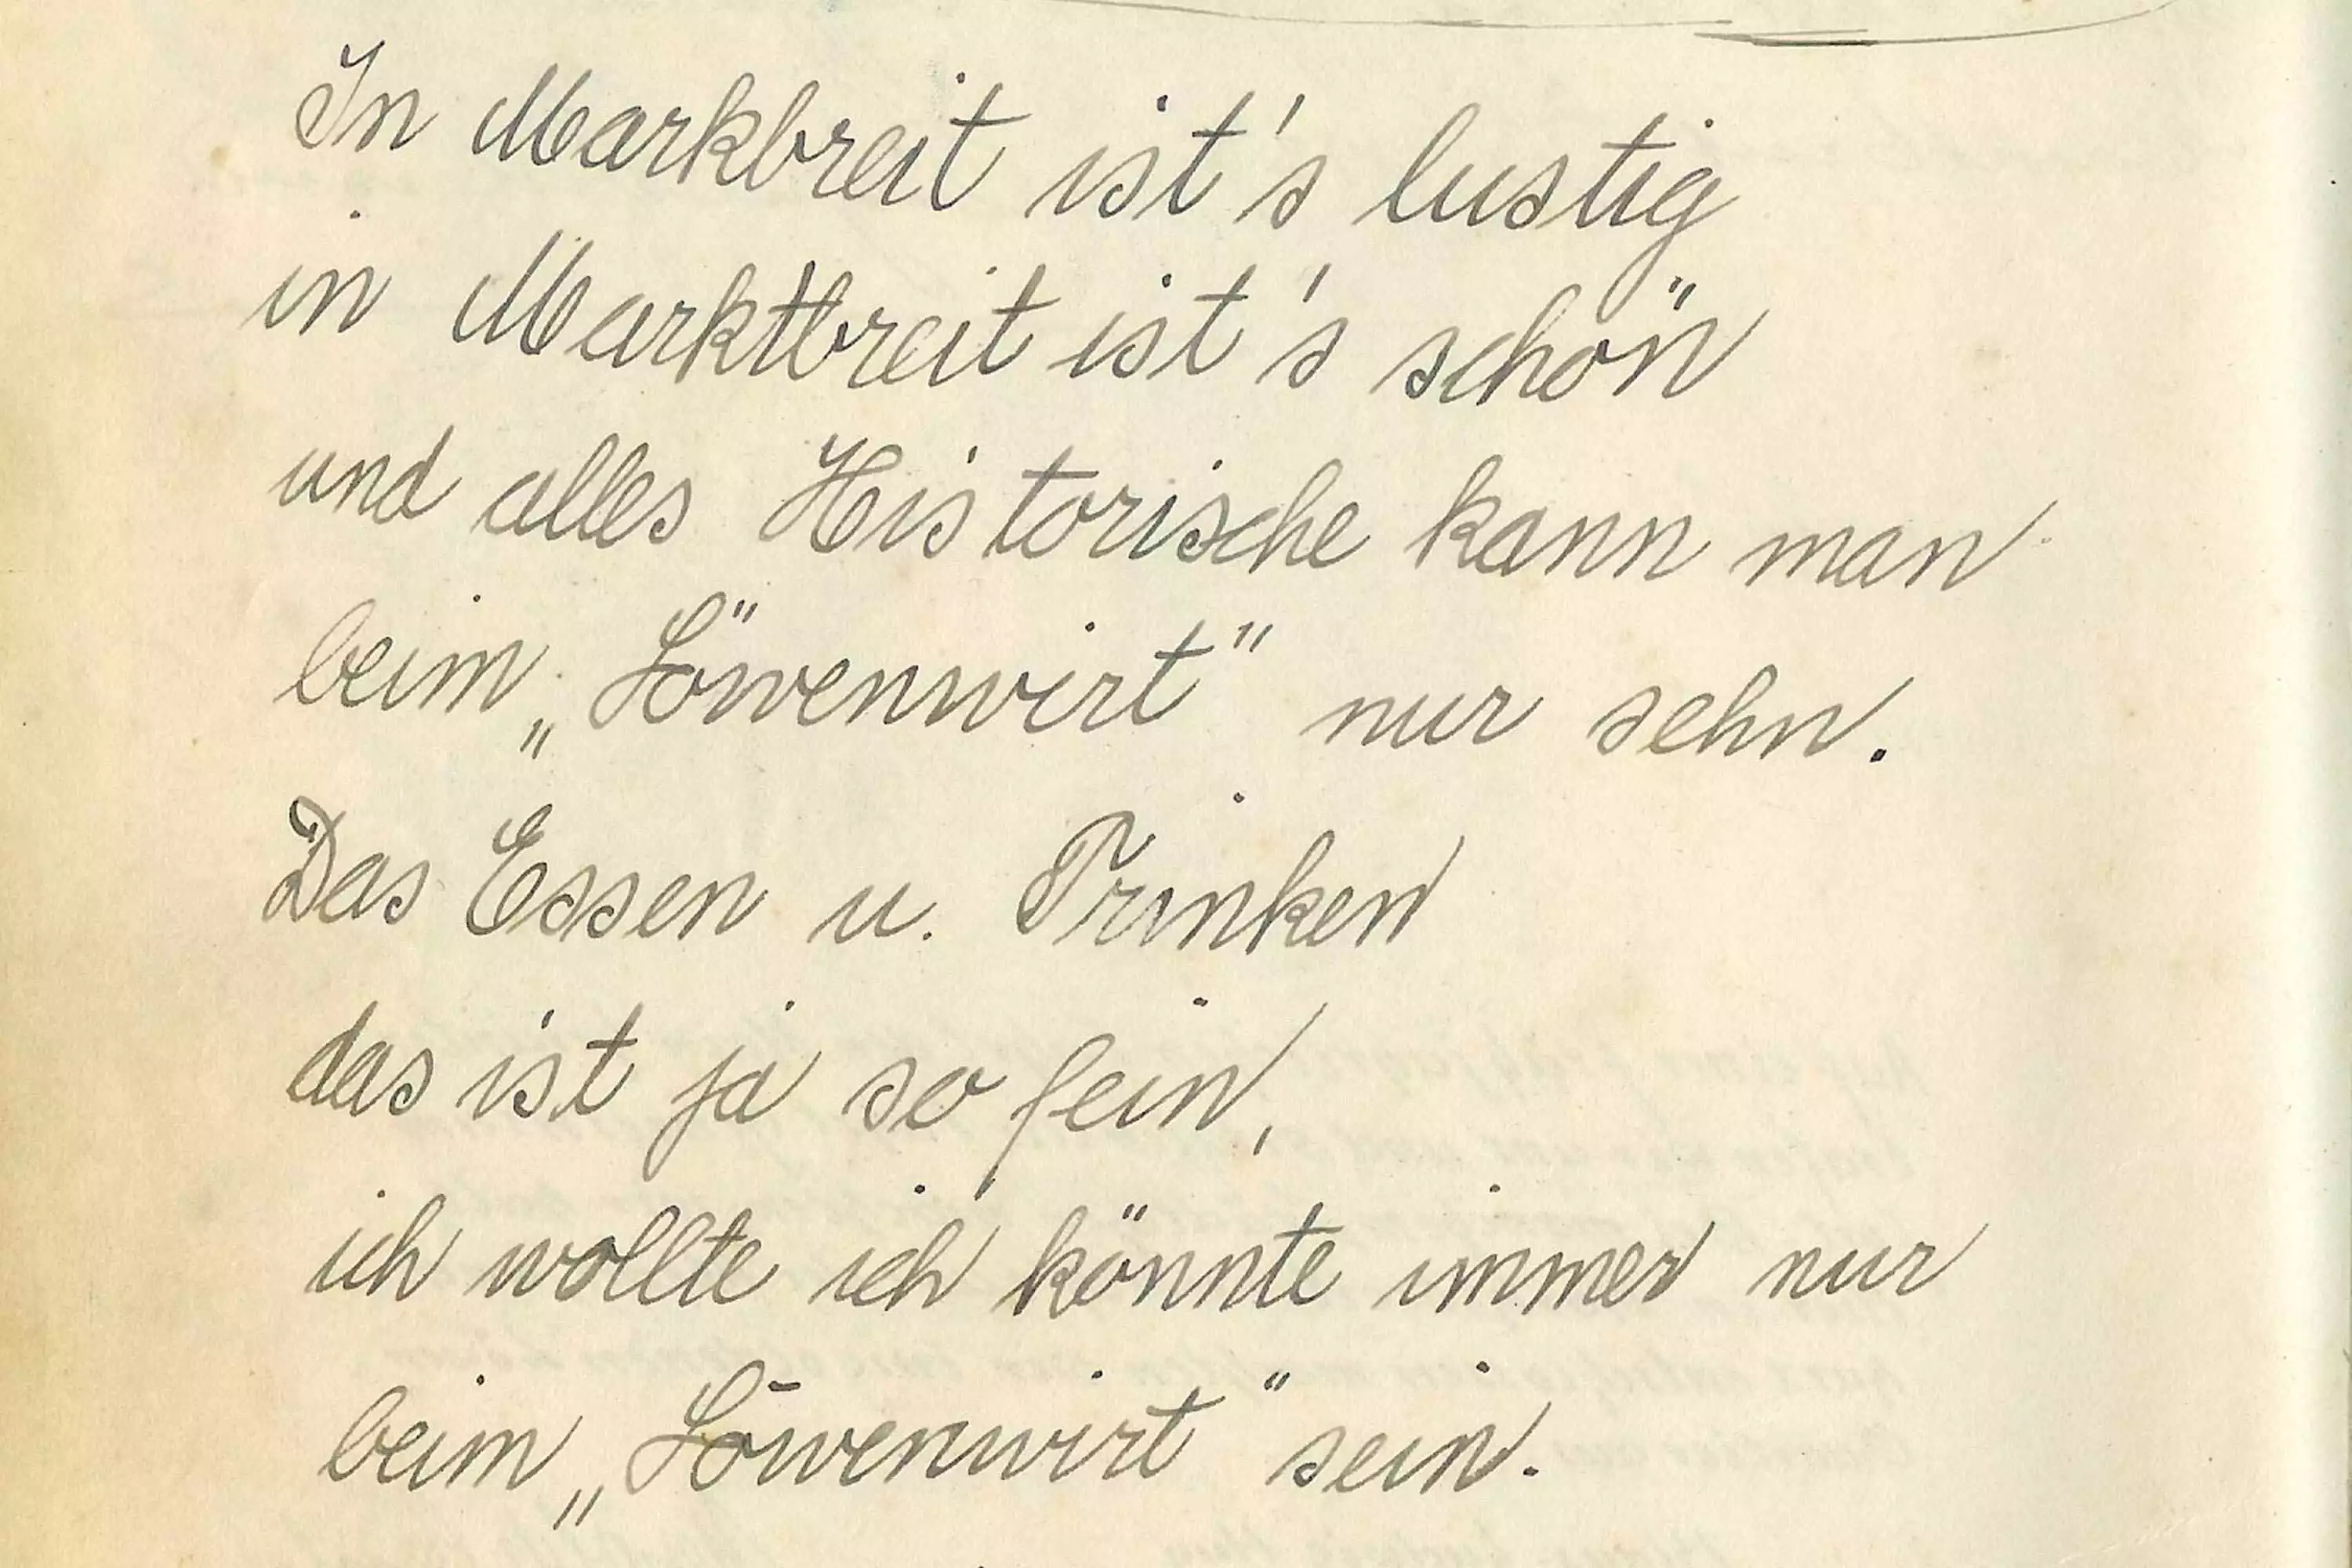 In Markbreit ist's lustig
in Marktbreit ist's schön
und alles Historische kann man
beim „Löwenwirt" nur sehn.
Das Essen u. Trinken
das ist ja so fein,
ich wollte ich könnte immer nur
beim „Löwenwirt" sein.